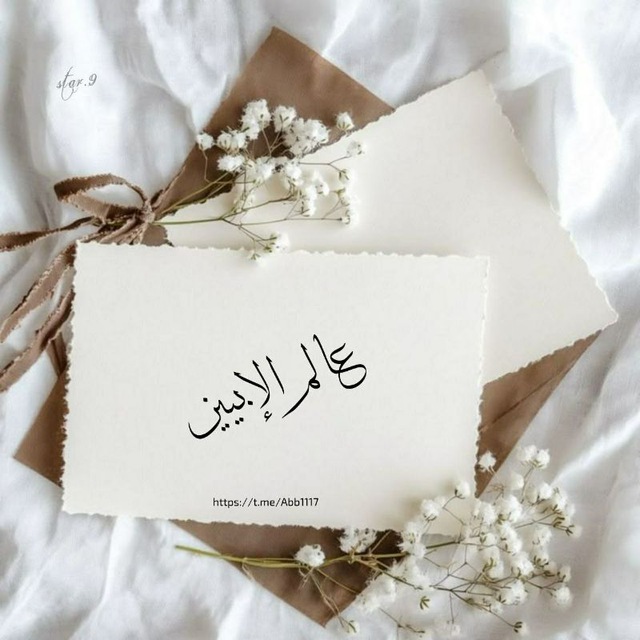 star.9
عالم الإبيين
https://t.me/Abb1117